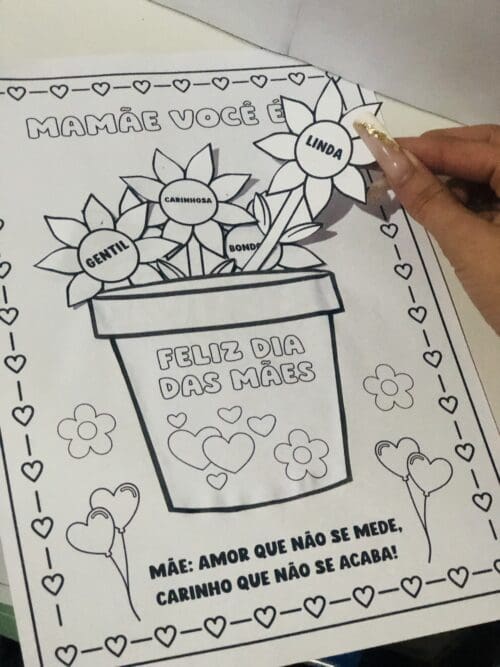 MAMÃE VOCÊ É
LINDA
CARINHOSA
GENTIL
FELIZ DIA
DAS MÃES
MÃE: AMOR QUE NÃO SE MEDE,
CARINHO QUE NÃO SE ACABA!